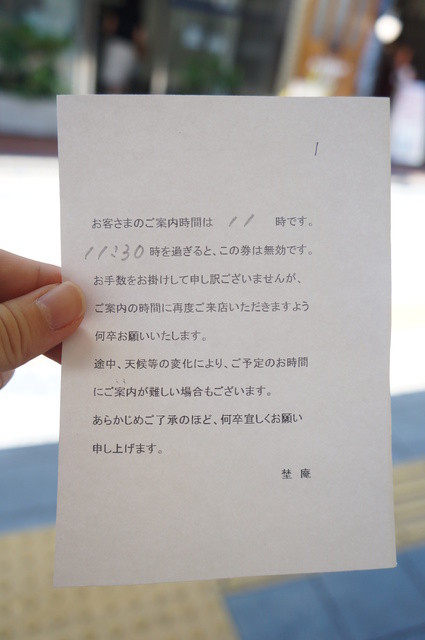 1
お客さまのご案内時間は 11 時です。
11:30 時を過ぎると、この券は無効です。
お手数をお掛けして申し訳ございませんが、
ご案内の時間に再度ご来店いただきますよう
何卒お願いいたします。
途中、天候等の変化により、ご予定のお時間
にご案内が難しい場合もございます。
あらかじめご了承のほど、何卒宜しくお願い
申し上げます。
埜 庵